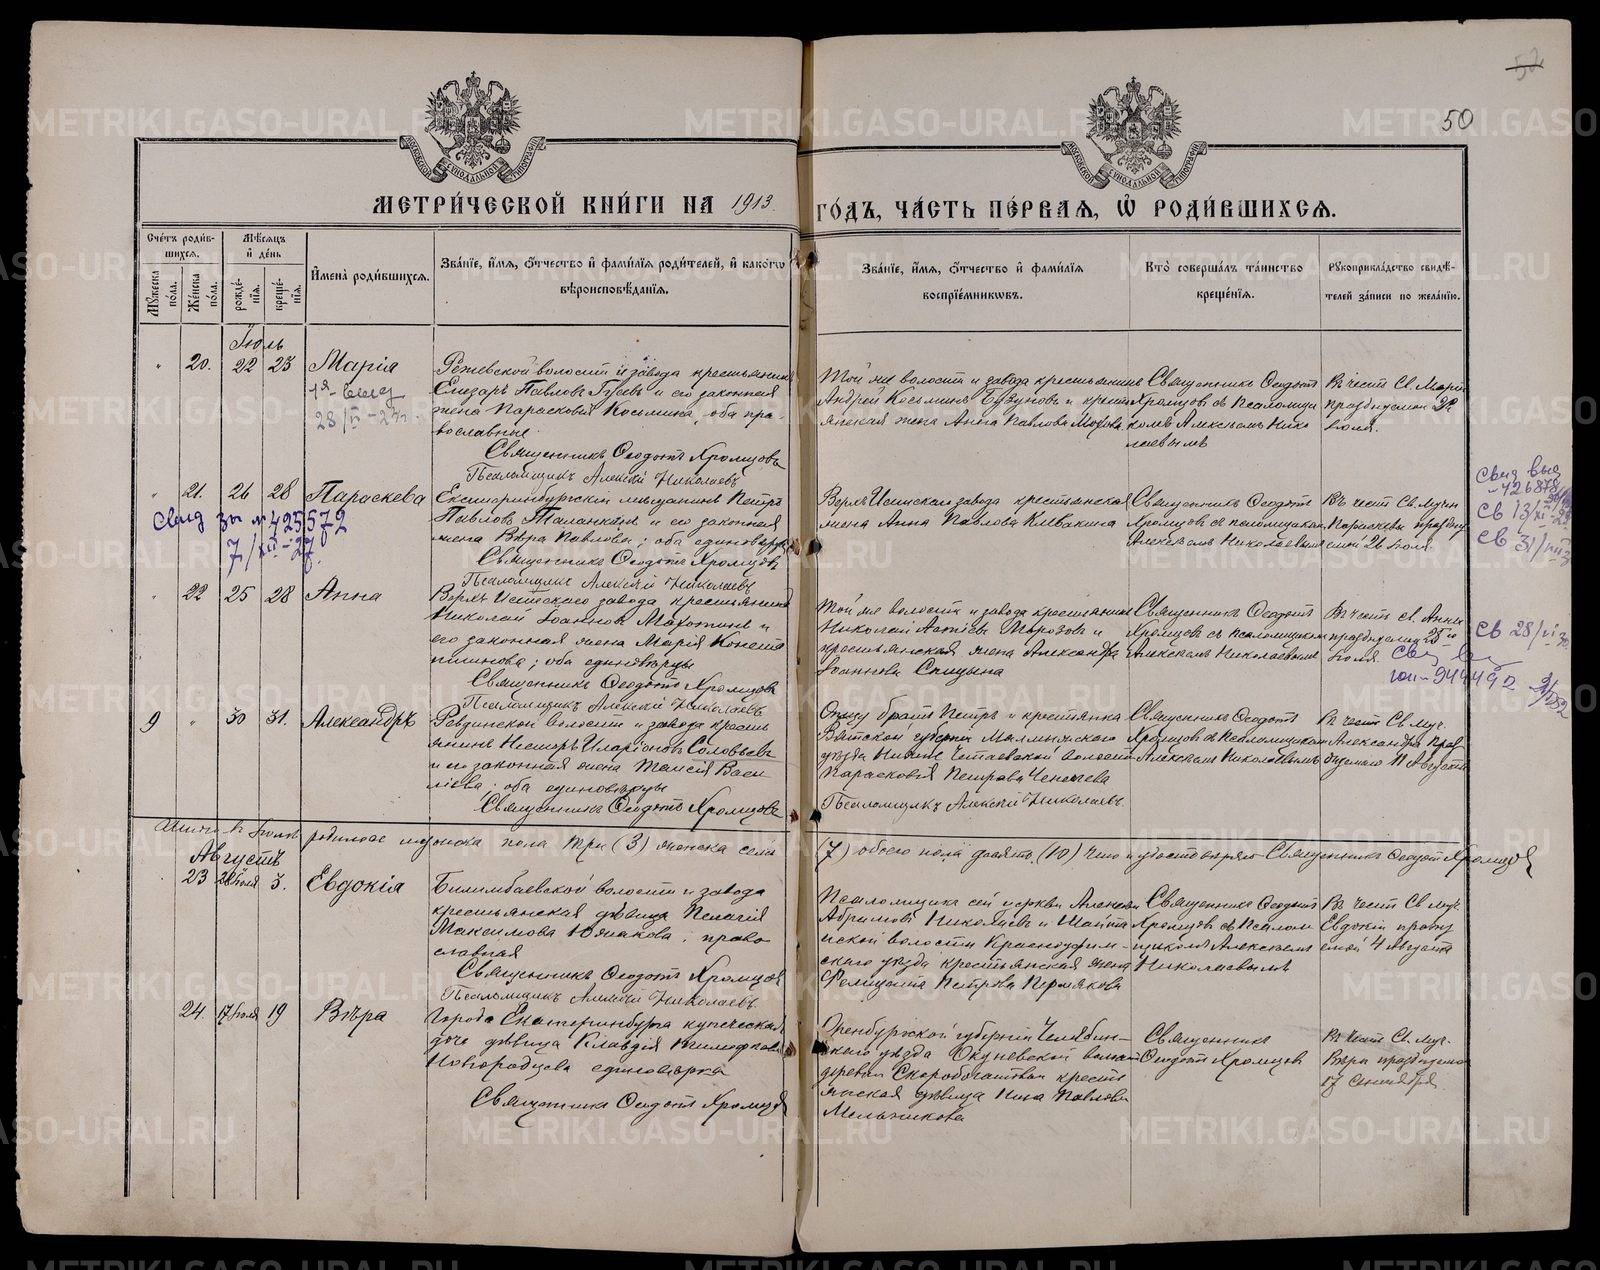 52
50
МЕТРИ́ЧЕСКОЙ КНИ́ГИ НА 1913 ГО́ДЪ, ЧА́СТЬ ПЕ́РВАЯ, Ѡ РОДИ́ВШИХСЯ.
Сче́тъ роди́в-
шихся.
Мꙋ́жеска по́ла.
Же́нска по́ла.
Мѣ́сяцъ и҆ де́нь
рожде́-
нїя.
креще́-
нїя.
И҆мена̀ роди́вшихся.
Зва́нїе, и҆́мя, ѻ҆́тчество и҆ фами́лїя роди́телей, и҆ како́гѡ
вѣроисповѣ́данїя.
Зва́нїе, и҆́мя, ѻ҆́тчество и҆ фами́лїя
воспрїе́мникѡвъ.
Кто̀ соверша́лъ та́инство
креще́нїя.
Рꙋкоприкла́дство свидѣ́-
телей за́писи по жела́нїю.
Іюль
20. 22 23 Марія
Режевской волости и завода крестьянинъ
Елизаръ Павловъ Гусевъ и его законная
жена Парасковія Косьмина, оба пра-
вославные.
Священникъ Ѳеодотъ Хромцовъ
Псаломщикъ Алексій Николаевъ
Той же волости и завода крестьянинъ
Андрей Косьминъ и крестьянская жена Анна Павлова
Священникъ Ѳеодотъ
Хромцовъ съ псаломщи
комъ Алексѣемъ Нико
лаевымъ
Въ честь Св. Маріи
празднуемой 22
Іюля.
28/VI-27 г.
21. 26 28 Параскева
Екатеринбургскій мѣщанинъ Петръ
Павловъ и его законная
жена Вѣра Павлова; оба единовѣрцы
Священникъ Ѳеодотъ Хромцовъ
Псаломщикъ Алексій Николаевъ
Верхъ Исетскаго завода крестьянская
жена Анна Павлова
Священникъ Ѳеодотъ
Хромцовъ съ псаломщикомъ
Алексѣемъ Николаевымъ
Въ честь Св. Муч.
Параскевы праздну
емой 26 Іюля.
№ 425572
7/XII-27
22 25 28 Анна
Верхъ Исетскаго завода крестьянинъ
Николай Іоанновъ и
его законная жена Марія Конста
нтинова; оба единовѣрцы
Священникъ Ѳеодотъ Хромцовъ
Псаломщикъ Алексій Николаевъ
Той же волости и завода крестьянинъ
Николай Морозовъ и
крестьянская жена Александра
Іоаннова
Священникъ Ѳеодотъ
Хромцовъ съ псаломщикомъ
Алексѣемъ Николаевымъ
Въ честь Св. Анны
празднуемой 25го
Іюля.
9 30 31. Александръ
Ревдинской волости и завода кресть
янинъ Несторъ Иларіоновъ Соловьевъ
и его законная жена Таисія Васи
ліева; оба единовѣрцы
Священникъ Ѳеодотъ Хромцовъ
Отцу братъ Петръ и крестьянка
Вятской губерніи Малмыжскаго
уѣзда волости
Парасковія Петрова
Псаломщикъ Алексій Николаевъ.
Священникъ Ѳеодотъ
Хромцовъ съ псаломщикомъ
Алексѣемъ Николаевымъ
Въ честь Св. Муч.
Александра праз
днуемаго 11 Августа
Итого въ Іюлѣ родилось мужска пола три (3) женска семь (7) обоего пола десять (10) Что и удостовѣряю Священникъ Ѳеодотъ Хромцовъ
Августъ
23 28 Іюля 3. Евдокія
Билимбаевской волости и завода
крестьянская дѣвица Пелагія
Максимова Южакова; право
славная
Священникъ Ѳеодотъ Хромцовъ
Псаломщикъ Алексій Николаевъ
Псаломщикъ сей церкви Алексій
Абрамовъ Николаевъ и Шайта
нской волости Красноуфим-
скаго уѣзда крестьянская жена
Фелицата Петрова Пермякова
Священникъ Ѳеодотъ
Хромцовъ съ псалом
щикомъ Алексѣемъ
Николаевымъ
Въ честь Св. Муч.
Евдокіи праздну
емой 4 Августа
24 17 Іюля 19 Вѣра
Города Екатеринбурга купеческая
дочь дѣвица Клавдія Тимофеева
Новгородцева единовѣрка
Священникъ Ѳеодотъ Хромцовъ
Оренбургской губерніи Челябин-
скаго уѣзда Окуневской волости
деревни Скоробогатовой кресть
янская дѣвица Нина Павлова
Мельникова
Священникъ
Ѳеодотъ Хромцовъ
Въ честь Св. Муч.
Вѣры празднуемой
17 Сентября.
METRIKI.GASO-URAL.RU